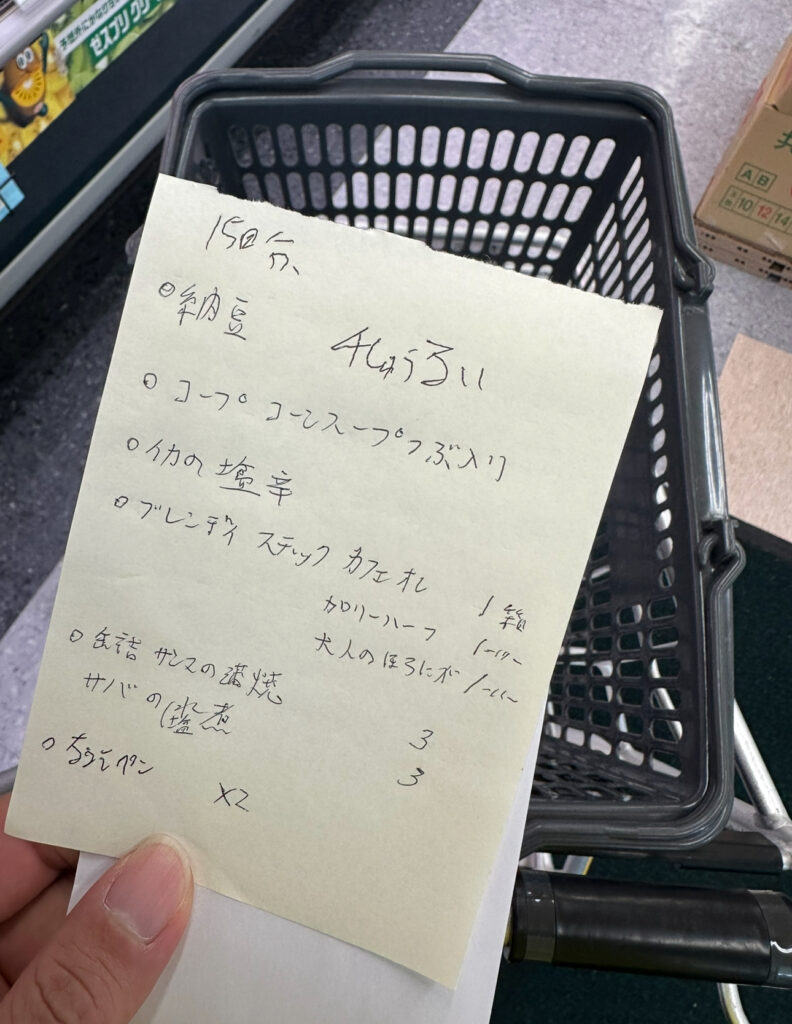 予想外にかなりヨ
ゼスプリ グリー
AB
10 12 14
15日分、
納豆
4しゅうるい
コープ コーンスープつぶ入り
イカの塩辛
ブレンディ スティック カフェオレ 1箱
カロリーハーフ 1-〃-
大人のほろにが 1-〃-
缶詰 サンマの蒲焼 3
サバの塩煮 3
ペン ×2